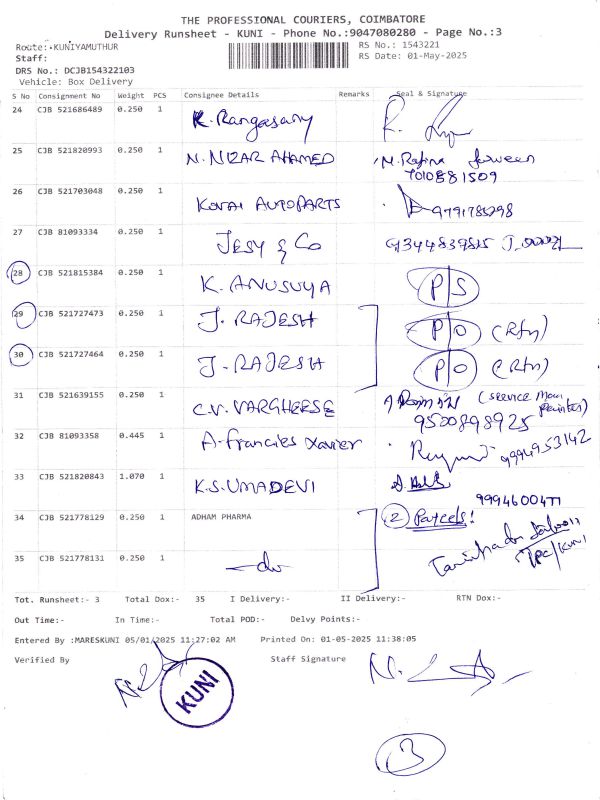 THE PROFESSIONAL COURIERS, COIMBATORE
Delivery Runsheet - KUNI - Phone No.:9047080280 - Page No.:3
Route:-KUNIYAMUTHUR
RS No.: 1543221
Staff:
RS Date: 01-May-2025
DRS No.: DCJB154322103
Vehicle: Box Delivery
S No Consignment No Weight PCS Consignee Details Remarks Seal & Signature
24 CJB 521686489 0.250 1 K. Rangasamy R.
25 CJB 521820993 0.250 1 N. NIZAR AHAMED M. 
7010881509
26 CJB 521703048 0.250 1 KOVAI AUTOPARTS 9791785298
27 CJB 81093334 0.250 1 JESY & Co 9344839815
28 CJB 521815384 0.250 1 K. ANUSUYA P/S
29 CJB 521727473 0.250 1 J. RAJESH P/O (Rtn)
30 CJB 521727464 0.250 1 J. RAJESH P/O (Rtn)
31 CJB 521639155 0.250 1 C.V. VARGHEESE (service man
9500898925
32 CJB 81093358 0.445 1 A. Francies Xavier 9994953142
33 CJB 521820843 1.070 1 K.S. UMADEVI
9994600477
34 CJB 521778129 0.250 1 ADHAM PHARMA 2 Parcels!
35 CJB 521778131 0.250 1 -do- TPC/KUNI
Tot. Runsheet:- 3 Total Dox:- 35 I Delivery:- II Delivery:- RTN Dox:-
Out Time:- In Time:- Total POD:- Delvy Points:-
Entered By :MARESKUNI 05/01/2025 11:27:02 AM Printed On: 01-05-2025 11:38:05
Verified By Staff Signature
KUNI
3